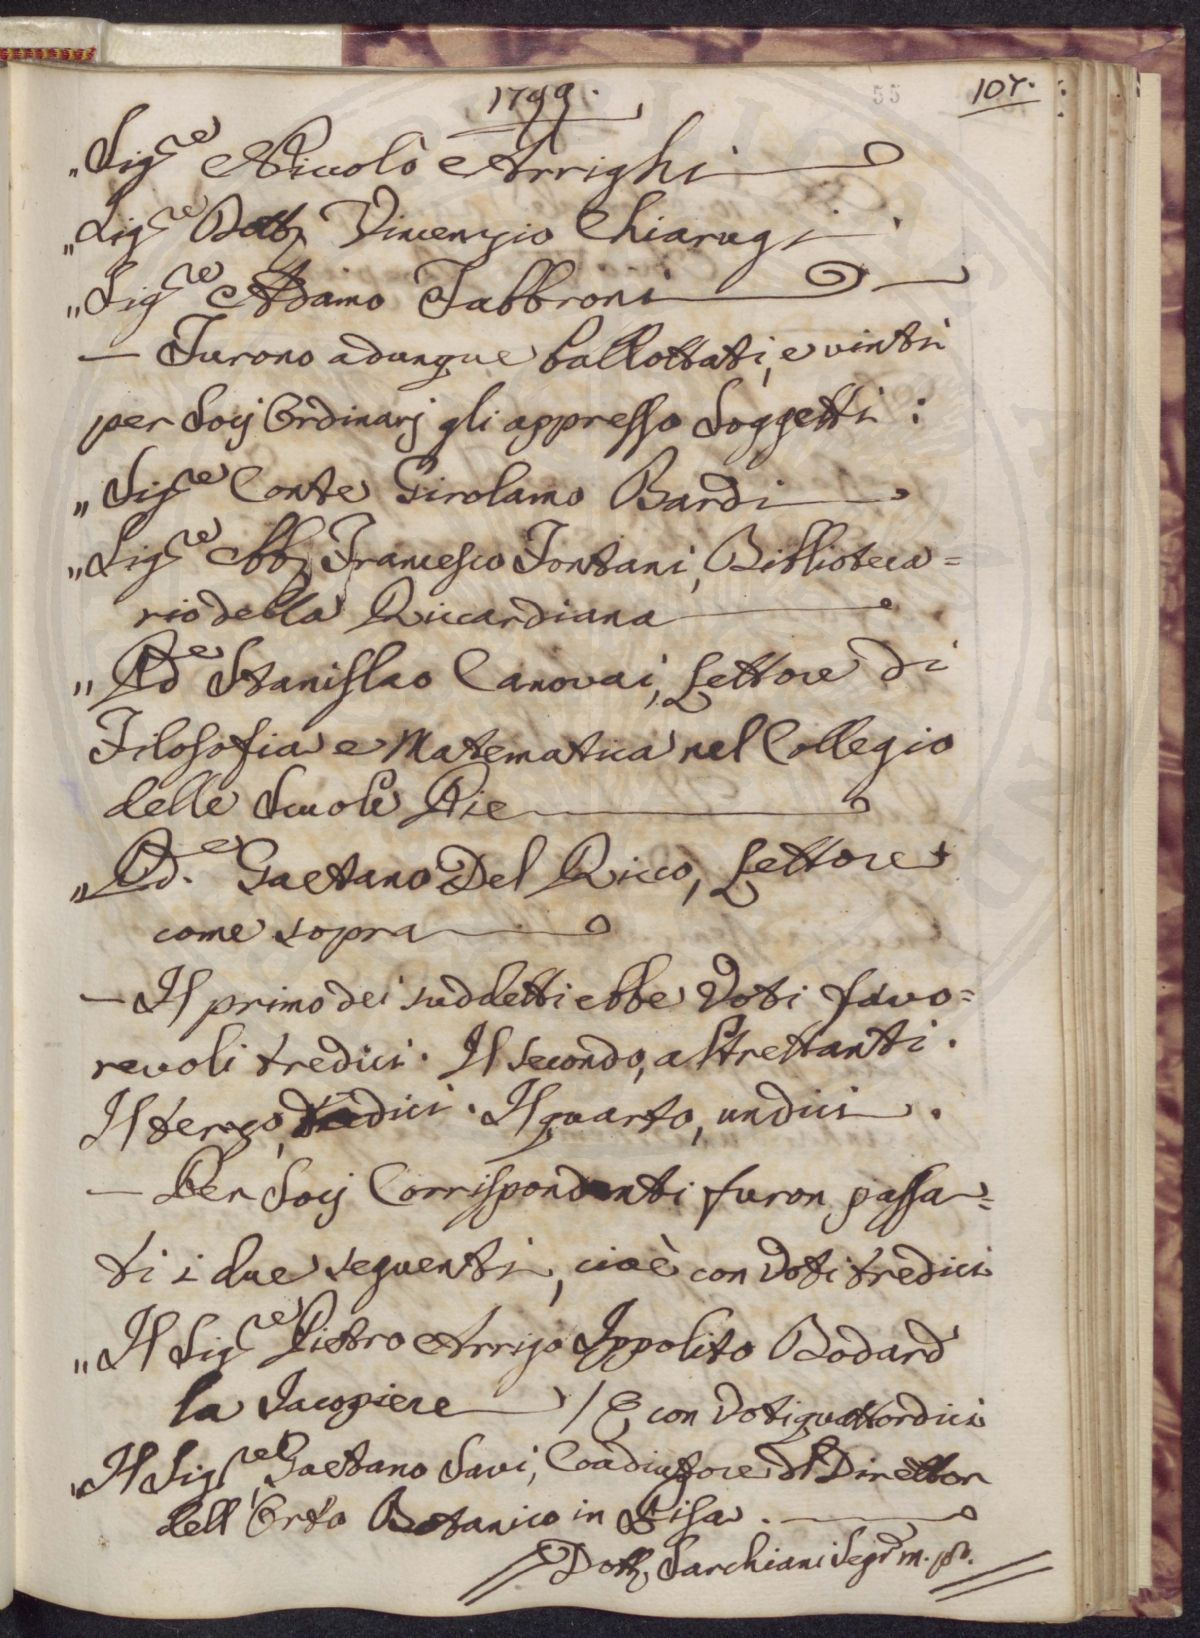 1799.
55
107.
„ Sig.re Niccolò Arrighi
„ Sig.re Dott. Vincenzio Chiarugi
„ Sig.re Adamo Fabbroni
— Furono adunque ballottati, e vinti
per Socj Ordinarj gli appresso Soggetti :
„ Sig.re Conte Girolamo Bardi
„ Sig.re Abb. Francesco Fontani, Biblioteca=
rio della Riccardiana
„ Pde Stanislao Canovai, Lettore di
Filosofia e Matematica nel Collegio
delle Scuole Pie
„ Pd.e Gaetano Del Ricco, Lettore
come sopra
— Il primo dei suddetti ebbe Voti favo=
revoli tredici. Il secondo, altrettanti.
Il terzo, dodici. Il quarto, undici.
— Per Socj Corrispondenti furon passa=
ti i due seguenti, cioè con Voti tredici
„ Il Sig.re Pietro Arrigo Ippolito Bodard
la Jacopiere / E con Voti quattordici
„ Il Sig.re Gaetano Savi, Coadiutore al Direttor
dell'Orto Botanico in Pisa.
Dott. Sarchiani Segr. m. pp.